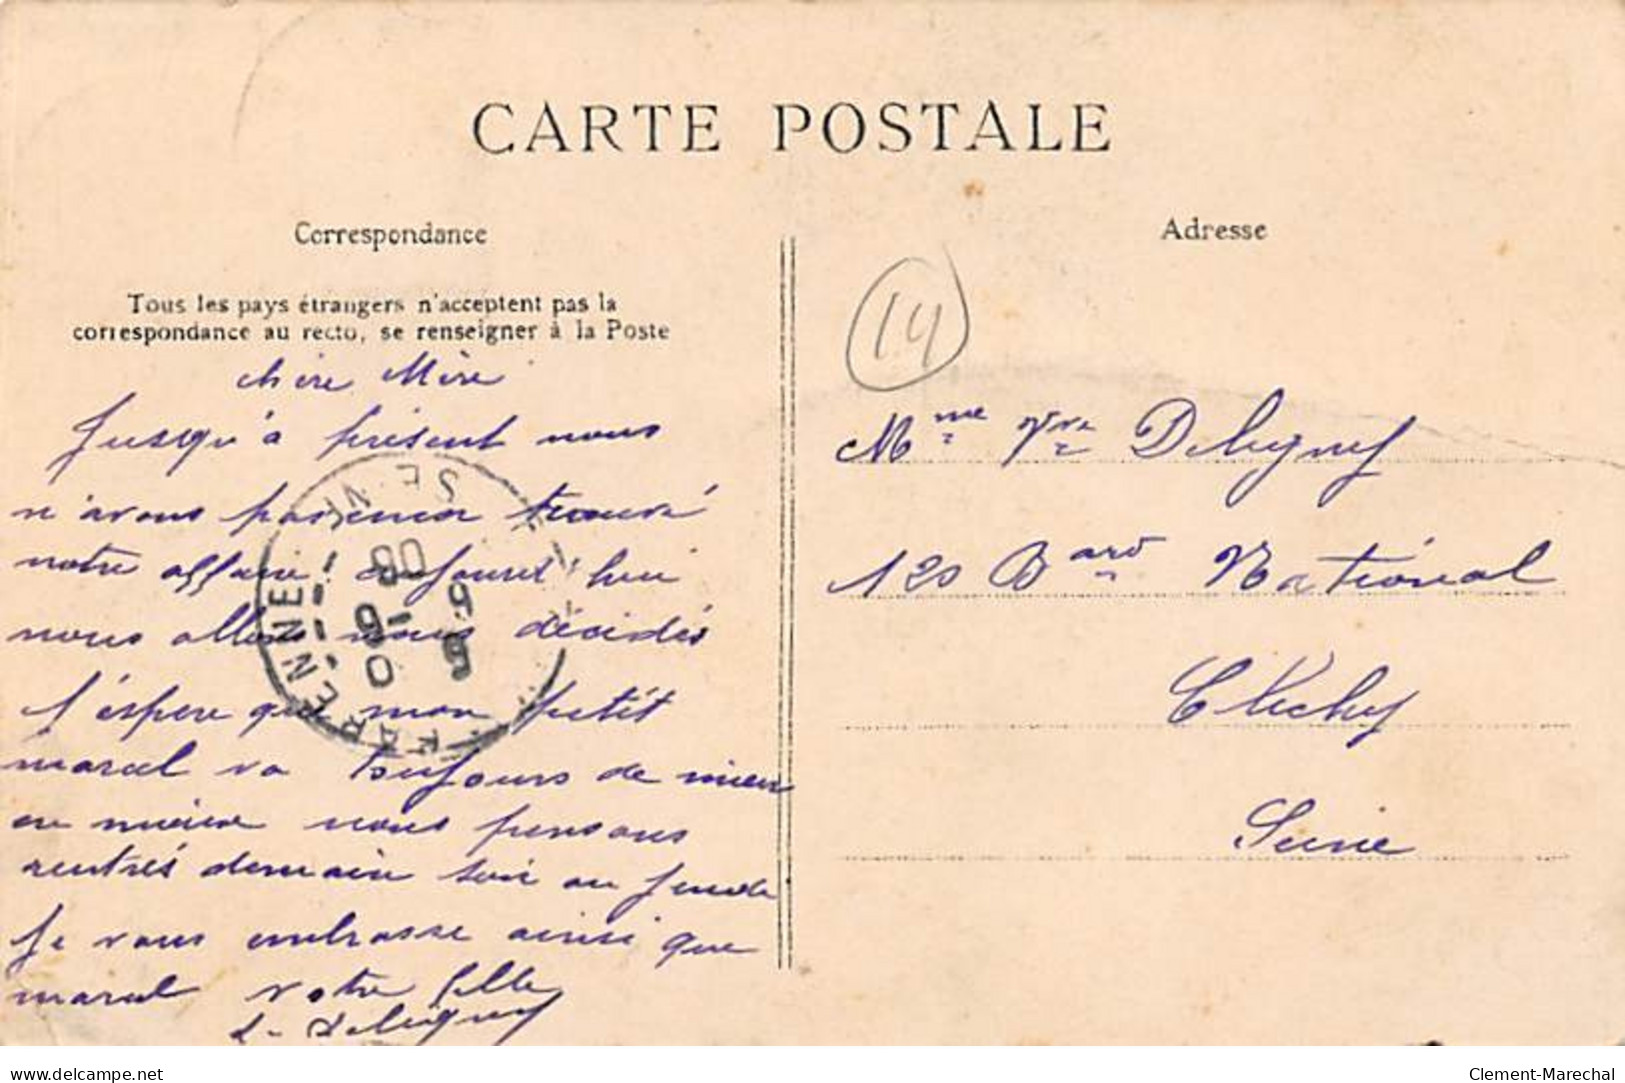 CARTE POSTALE
Correspondance
Tous les pays étrangers n'acceptent pas la
correspondance au recto, se renseigner à la Poste
chere Mère
Jusqu'à présent nous
n'avons pas encor trouvé
notre affaire aujourd'hui
nous allons nous décidés
J'éspere que mon petit
marcel va toujours de mieu
en mieux nous pensons
rentrés demain soir ou jeudi
Je vous embrasse ainsi que
marcel votre fille
L. Deligny
Adresse
14
Mme Vve Deligny
120 Bard National
Clichy
Seine
VARENNE
delcampe.net
Clement-Marechal